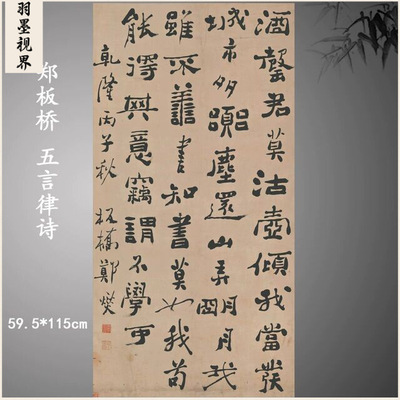 羽墨视界
郑板桥 五言律诗
59.5*115cm
酒罄君莫沽壺傾我當發
城市多囂塵還山弄明月我
雖不善書知書莫如我苟
能得其意竊謂不學可
乾隆丙子秋 板橋鄭燮